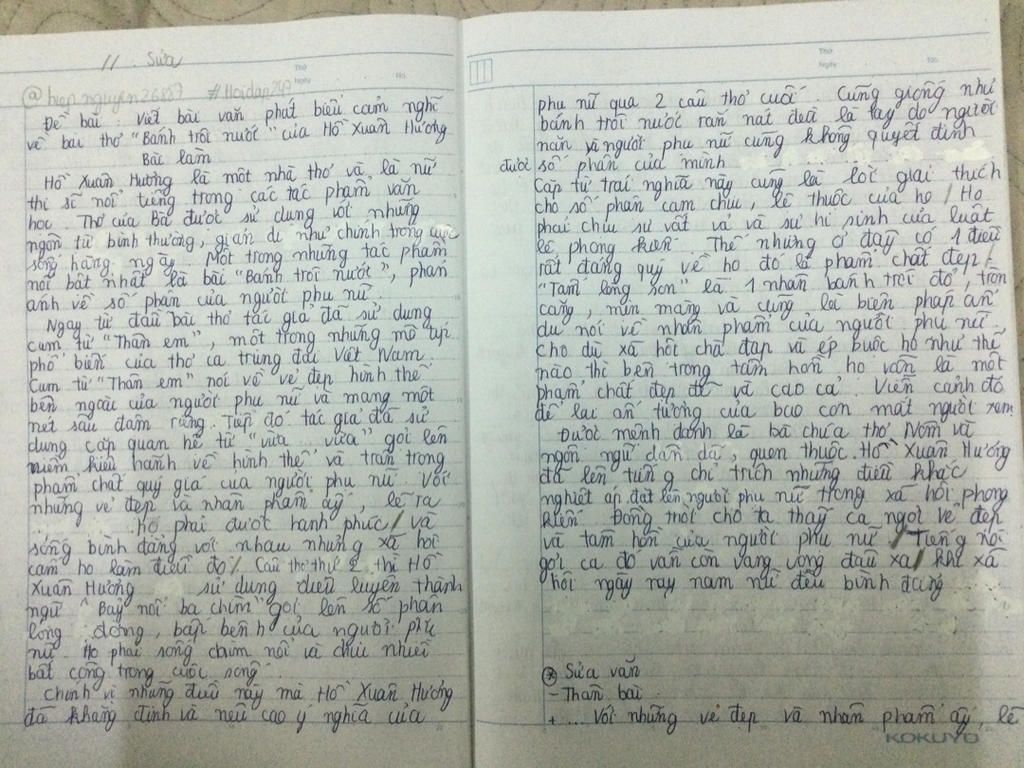 11. Sửa
Thứ
Ngày
No.
@hiepnguyen26857 #Hoidap247
Đề bài: Viết bài văn phát biểu cảm nghĩ
về bài thơ "Bánh trôi nước" của Hồ Xuân Hương
Bài làm
Hồ Xuân Hương là một nhà thơ và là nữ
thi sĩ nổi tiếng trong các tác phẩm văn
học. Thơ của Bà được sử dụng với những
ngôn từ bình thường, giản dị như chính trong cuộc
sống hằng ngày. Một trong những tác phẩm
nổi bật nhất là bài "Bánh trôi nước", phản
ánh về số phận của người phụ nữ.
Ngay từ đầu bài thơ tác giả đã sử dụng
cụm từ "Thân em", một trong những mô típ
phổ biến của thơ ca trung đại Việt Nam.
Cụm từ "Thân em" nói về vẻ đẹp hình thể
bên ngoài của người phụ nữ và mang một
nét sâu đậm rằng. Tiếp đó tác giả đã sử
dụng cặp quan hệ từ "vừa... vừa" gợi lên
niềm kiêu hãnh về hình thể và trân trọng
phẩm chất quý giá của người phụ nữ. Với
những vẻ đẹp và nhân phẩm ấy, lẽ ra
họ phải được hạnh phúc / và
sống bình đẳng với nhau nhưng xã hội
cấm họ làm điều đó /. Câu thơ thứ 2 thì Hồ
Xuân Hương sử dụng điêu luyện thành
ngữ "Bảy nổi ba chìm" gợi lên số phận
lông đông, bấp bênh của người phụ
nữ. Họ phải sống chìm nổi và chịu nhiều
bất công trong cuộc sống.
Chính vì những điều này mà Hồ Xuân Hương
đã khẳng định và nêu cao ý nghĩa của
Thứ
Ngày
No.
phụ nữ qua 2 câu thơ cuối. Cũng giống như
bánh trôi nước rắn nát đều là tay do người
nặn và người phụ nữ cũng không quyết định
được số phận của mình
Cặp từ trái nghĩa này cũng là lời giải thích
cho số phận cam chịu, lệ thuộc của họ / Họ
phải chịu sự vất vả và sự hi sinh của luật
lệ phong kiến. Thế nhưng ở đây có 1 điều
rất đáng quý về họ đó là phẩm chất đẹp.
"Tấm lòng son" là 1 nhân bánh trôi đỏ, tròn
căng, mịn màng và cũng là biện pháp ẩn
dụ nói về nhân phẩm của người phụ nữ.
Cho dù xã hội chà đạp và ép buộc họ như thế
nào thì bên trong tâm hồn họ vẫn là một
phẩm chất đẹp đẽ và cao cả. Viễn cảnh đó
để lại ấn tượng của bao con mắt người xem.
Được mệnh danh là bà chúa thơ Nôm và
ngôn ngữ dân dã, quen thuộc. Hồ Xuân Hương
đã lên tiếng chỉ trích những điều khắc
nghiệt áp đặt lên người phụ nữ trong xã hội phong
kiến. Đồng thời cho ta thấy ca ngợi vẻ đẹp
và tâm hồn của người phụ nữ / Tiếng nói
gợi ca đó vẫn còn vang vọng đâu xa / khi xã
hội ngày nay nam nữ đều bình đẳng
* Sửa văn
- Thân bài
+ ... Với những vẻ đẹp và nhân phẩm ấy, lẽ
KOKUYO